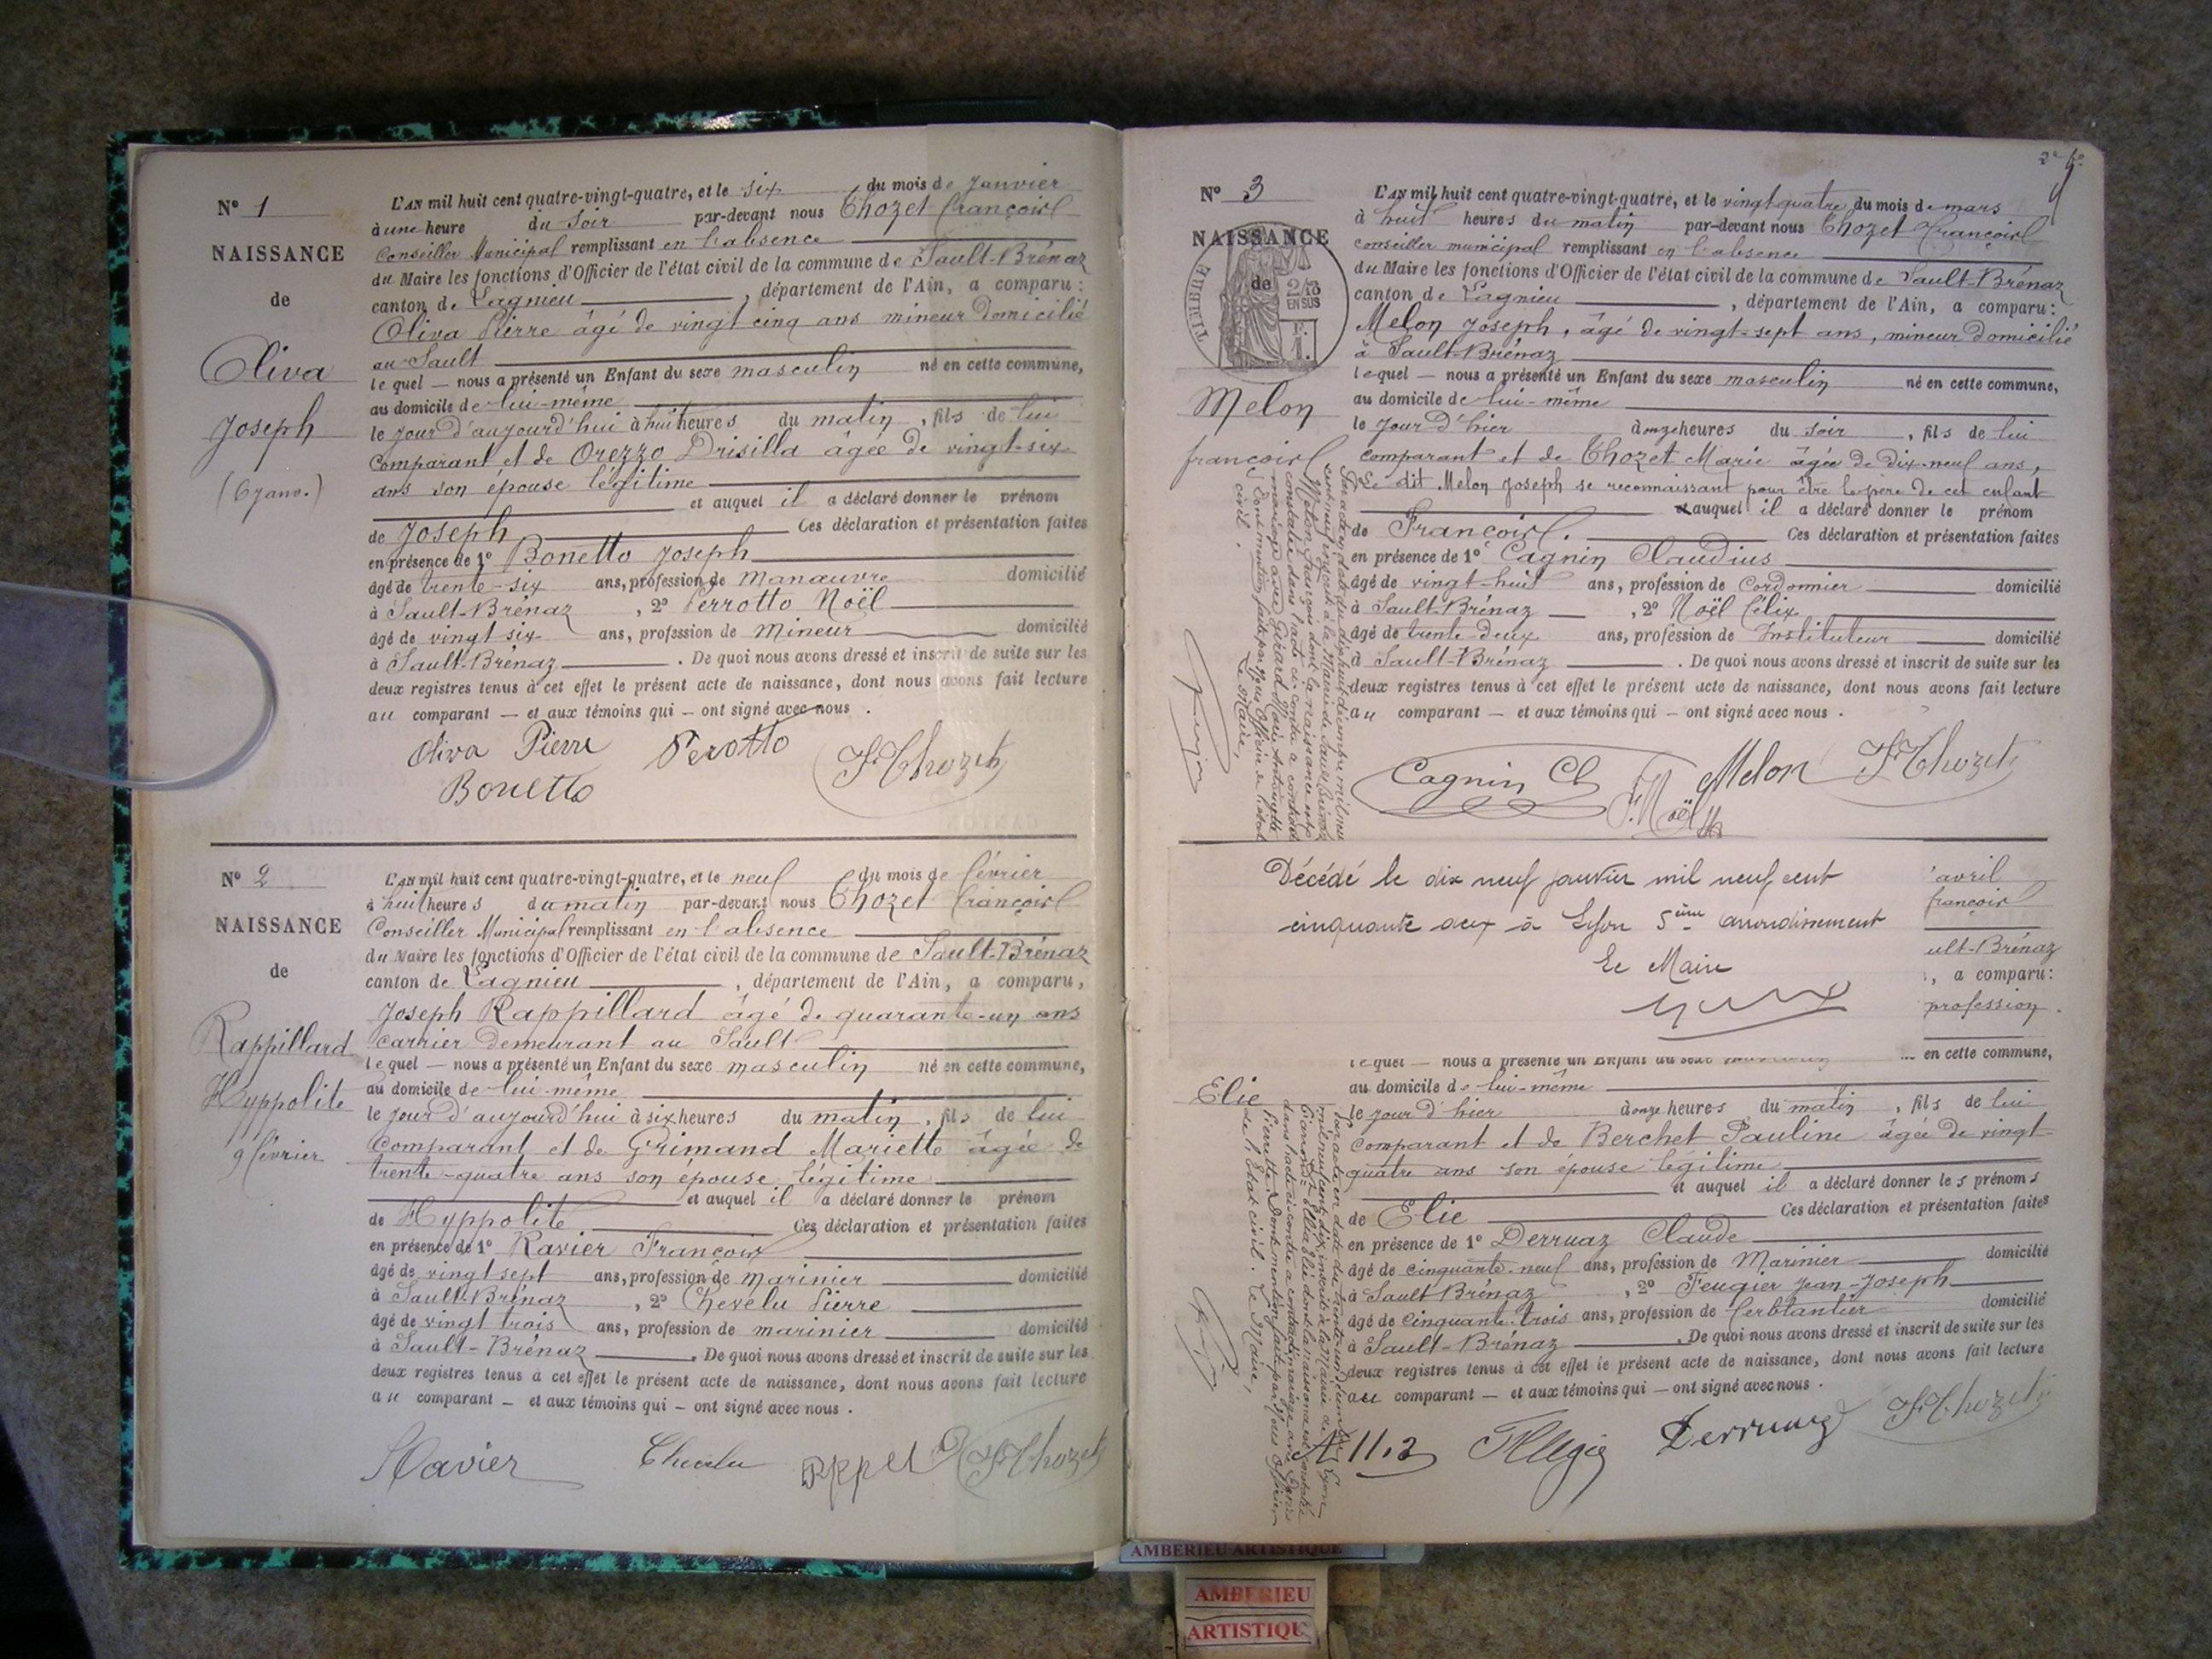 N° 1
NAISSANCE
de
Oliva
Joseph
(6 janv.)
L'AN mil huit cent quatre-vingt-quatre, et le six du mois de Janvier
à une heure du Soir par-devant nous Chozet François
Conseiller Municipal remplissant en l'absence
du Maire les fonctions d'Officier de l'état civil de la commune de Sault-Brénaz
canton de Lagnieu, département de l'Ain, a comparu :
Oliva Pierre âgé de vingt cinq ans mineur domicilié
au Sault
le quel — nous a présenté un Enfant du sexe masculin né en cette commune,
au domicile de lui-même
le jour d'aujourd'hui à huit heures du matin, fils de lui
comparant et de Orezzo Drisilla âgée de vingt-six
ans son épouse légitime
et auquel il a déclaré donner le prénom
de Joseph Ces déclaration et présentation faites
en présence de 1° Bonetto Joseph
âgé de trente-six ans, profession de manœuvre domicilié
à Sault-Brénaz, 2° Perrotto Noël
âgé de vingt six ans, profession de mineur domicilié
à Sault-Brénaz. De quoi nous avons dressé et inscrit de suite sur les
deux registres tenus à cet effet le présent acte de naissance, dont nous avons fait lecture
au comparant — et aux témoins qui — ont signé avec nous.
Oliva Pierre Perotto F. Chozet
Bonetto
N° 2
NAISSANCE
de
Rappillard
Hyppolite
9 février
L'AN mil huit cent quatre-vingt-quatre, et le neuf du mois de février
à huit heures du matin par-devant nous Chozet François
Conseiller Municipal remplissant en l'absence
du Maire les fonctions d'Officier de l'état civil de la commune de Sault-Brénaz
canton de Lagnieu, département de l'Ain, a comparu,
Joseph Rappillard âgé de quarante-un ans
carrier demeurant au Sault
le quel — nous a présenté un Enfant du sexe masculin né en cette commune,
au domicile de lui-même
le jour d'aujourd'hui à six heures du matin, fils de lui
comparant et de Grimand Mariette âgée de
trente-quatre ans son épouse légitime
et auquel il a déclaré donner le prénom
de Hyppolite Ces déclaration et présentation faites
en présence de 1° Ravier François
âgé de vingt sept ans, profession de marinier domicilié
à Sault-Brénaz, 2° Chevelu Pierre
âgé de vingt trois ans, profession de marinier domicilié
à Sault-Brénaz. De quoi nous avons dressé et inscrit de suite sur les
deux registres tenus à cet effet le présent acte de naissance, dont nous avons fait lecture
au comparant — et aux témoins qui — ont signé avec nous.
Ravier Chevelu F. Chozet
N° 3
NAISSANCE
de
TIMBRE
EN SUS
Melon
françois
L'AN mil huit cent quatre-vingt-quatre, et le vingt quatre du mois de mars
à huit heures du matin par-devant nous Chozet François
conseiller municipal remplissant en l'absence
du Maire les fonctions d'Officier de l'état civil de la commune de Sault-Brénaz
canton de Lagnieu, département de l'Ain, a comparu:
Melon Joseph, âgé de vingt-sept ans, mineur domicilié
à Sault-Brénaz
lequel — nous a présenté un Enfant du sexe masculin né en cette commune,
au domicile de lui-même
le jour d'hier à onze heures du soir, fils de lui
comparant et de Chozet Marie âgée de dix-neuf ans,
Le dit Melon Joseph se reconnaissant pour être le père de cet enfant
auquel il a déclaré donner le prénom
de François. Ces déclaration et présentation faites
en présence de 1° Cagnin Claudius
âgé de vingt-huit ans, profession de Cordonnier domicilié
à Sault-Brénaz, 2° Noël Félix
âgé de trente-deux ans, profession de Instituteur domicilié
à Sault-Brénaz. De quoi nous avons dressé et inscrit de suite sur les
deux registres tenus à cet effet le présent acte de naissance, dont nous avons fait lecture
au comparant — et aux témoins qui — ont signé avec nous.
Cagnin Cl F. Noël Melon F. Chozet
Décédé le dix neuf janvier mil neuf cent
cinquante deux à Lyon 5ème arrondissement
Le Maire
avril
françois
ult-Brénaz
, a comparu:
profession.
Elie
lequel — nous a présenté un Enfant du sexe masculin en cette commune,
au domicile de lui-même
le jour d'hier à onze heures du matin, fils de lui
comparant et de Berchet Pauline âgée de vingt
quatre ans son épouse légitime
et auquel il a déclaré donner les prénoms
de Elie Ces déclaration et présentation faites
en présence de 1° Derruaz Claude
âgé de cinquante-neuf ans, profession de Marinier domicilié
à Sault-Brénaz, 2° Feugier Jean-Joseph
âgé de cinquante-trois ans, profession de ferblantier domicilié
à Sault-Brénaz. De quoi nous avons dressé et inscrit de suite sur les
deux registres tenus à cet effet le présent acte de naissance, dont nous avons fait lecture
au comparant — et aux témoins qui — ont signé avec nous.
Derruaz F. Chozet
AMBERIEU ARTISTIQUE
AMBERIEU
ARTISTIQU